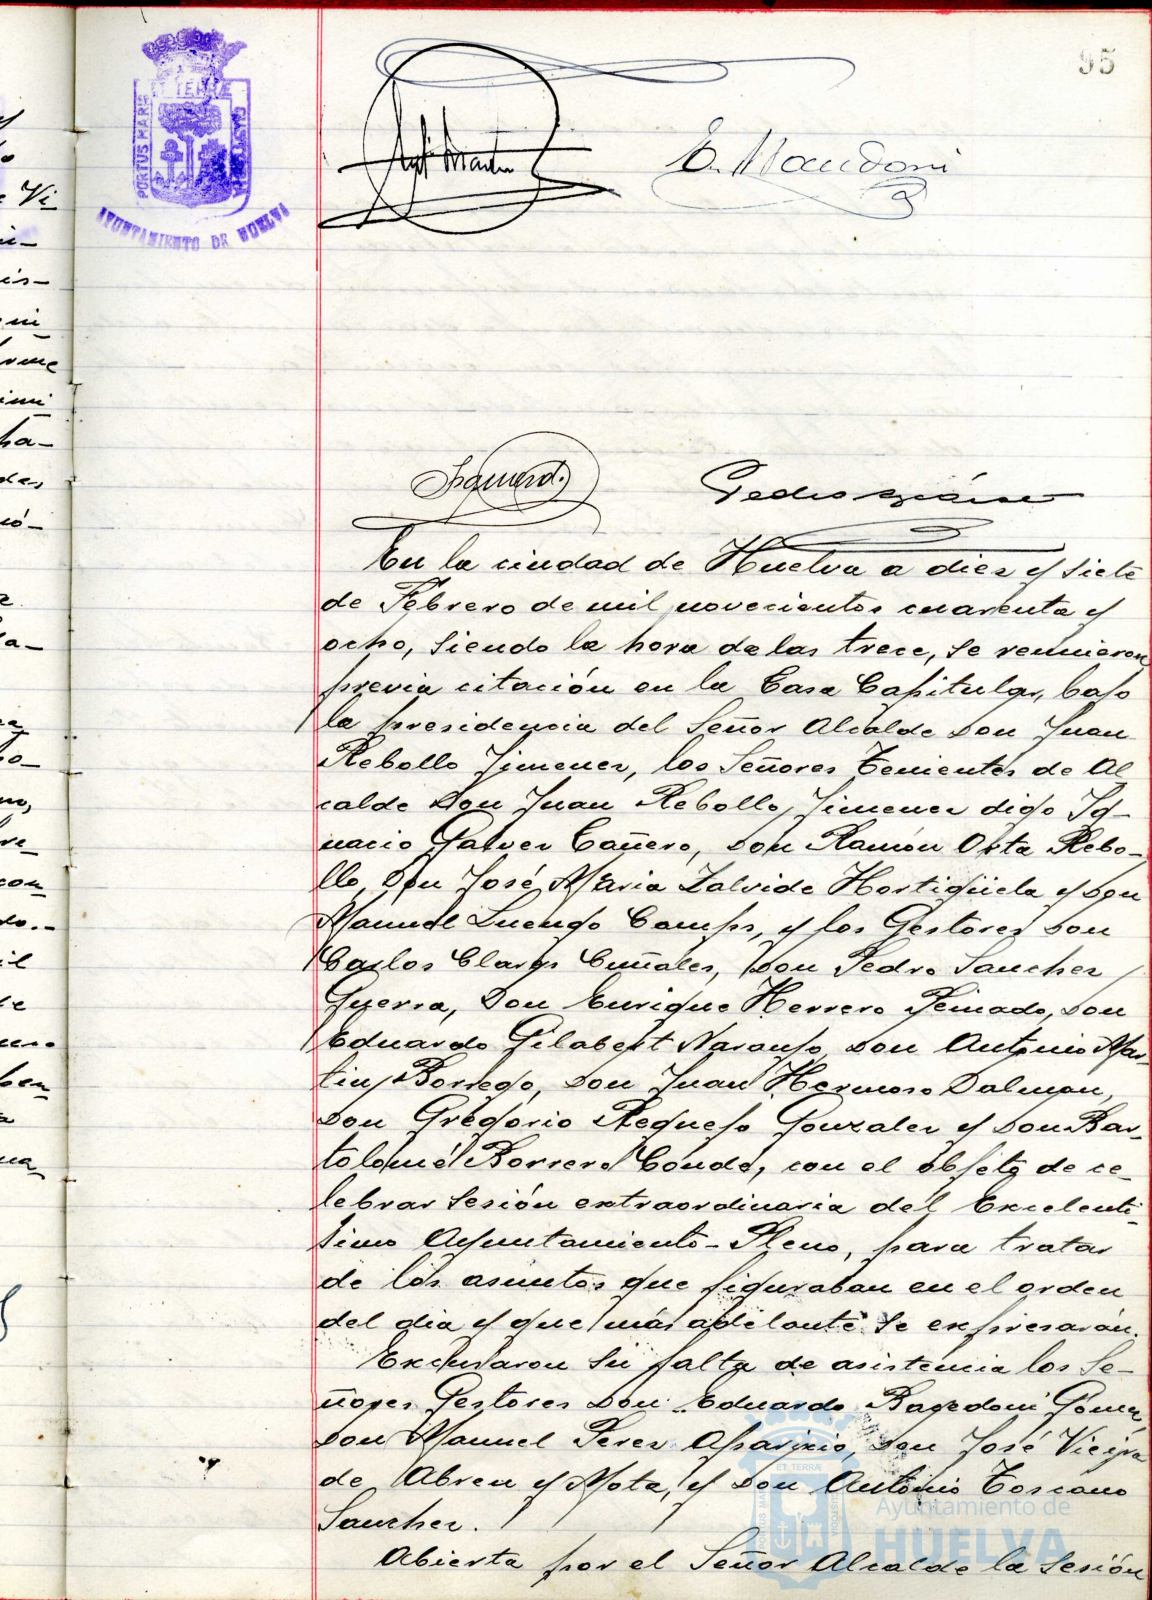 95
PORTUS MARIS
ET TERRÆ
AYUNTAMIENTO DE HUELVA
E. Mandoni
Izquierd.
En la ciudad de Huelva a diez y siete
de Febrero de mil novecientos cuarenta y
ocho, siendo la hora de las trece, se reunieron
previa citación en la Casa Capitular, bajo
la presidencia del Señor Alcalde Don Juan
Rebollo Jimenez, los Señores Tenientes de Al
calde Don Juan Rebollo Jimenez digo Ig-
nacio Galvez Cañero, Don Ramón Orta Rebo-
llo, Don José Maria Zalvide Hortigüela y Don
Manuel Luengo Camps, y los Gestores Don
Carlos Claros Cuñales, Don Pedro Sanchez
Guerra, Don Enrique Herrero Peinado, Don
Eduardo Gilabert Naranjo, Don Antonio Mar-
tin Borrego, Don Juan Hermoso Dalmau,
Don Gregorio Requejo Gonzalez y Don Bar-
tolomé Borrero Conde, con el objeto de ce-
lebrar sesión extraordinaria del Excelenti-
simo Ayuntamiento-Pleno, para tratar
de los asuntos que figuraban en el orden
del dia y que más adelante se expresarán.
Excusaron su falta de asistencia los Se-
ñores Gestores Don Eduardo Gomez,
Don Manuel Perez Aparicio, Don José Vieira
de Abreu y Mota, y Don Antonio Toscano
Sanchez.
Abierta por el Señor Alcalde la sesión
ET TERRÆ
Ayuntamiento de
HUELVA